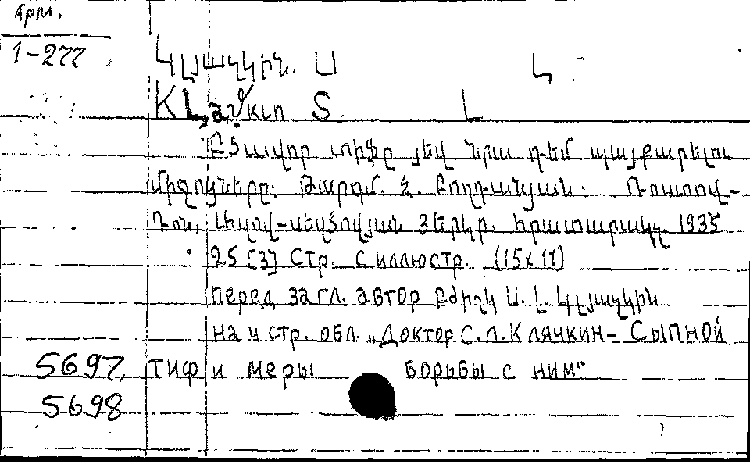 Арм.
1-277
Կլյաչկին. Ս Կ
KLaçkin S. L
Բծավոր տիֆը յեվ նրա դեմ պայքարելու
միջոցները. Թարգմ. Հ. Բողդանյան. Ռոստով-
Դոն, Ազով-սեվծովյան Յերկր. հրատարակչ. 1935
25 [3] стр. с иллюстр. (15х11)
перед загл. автор Բժիշկ Ս. Լ. Կլյաչկին
на 4 стр. обл. „Доктор С. Л. Клячкин – Сыпной
тиф и меры борьбы с ним"
5697,
5698